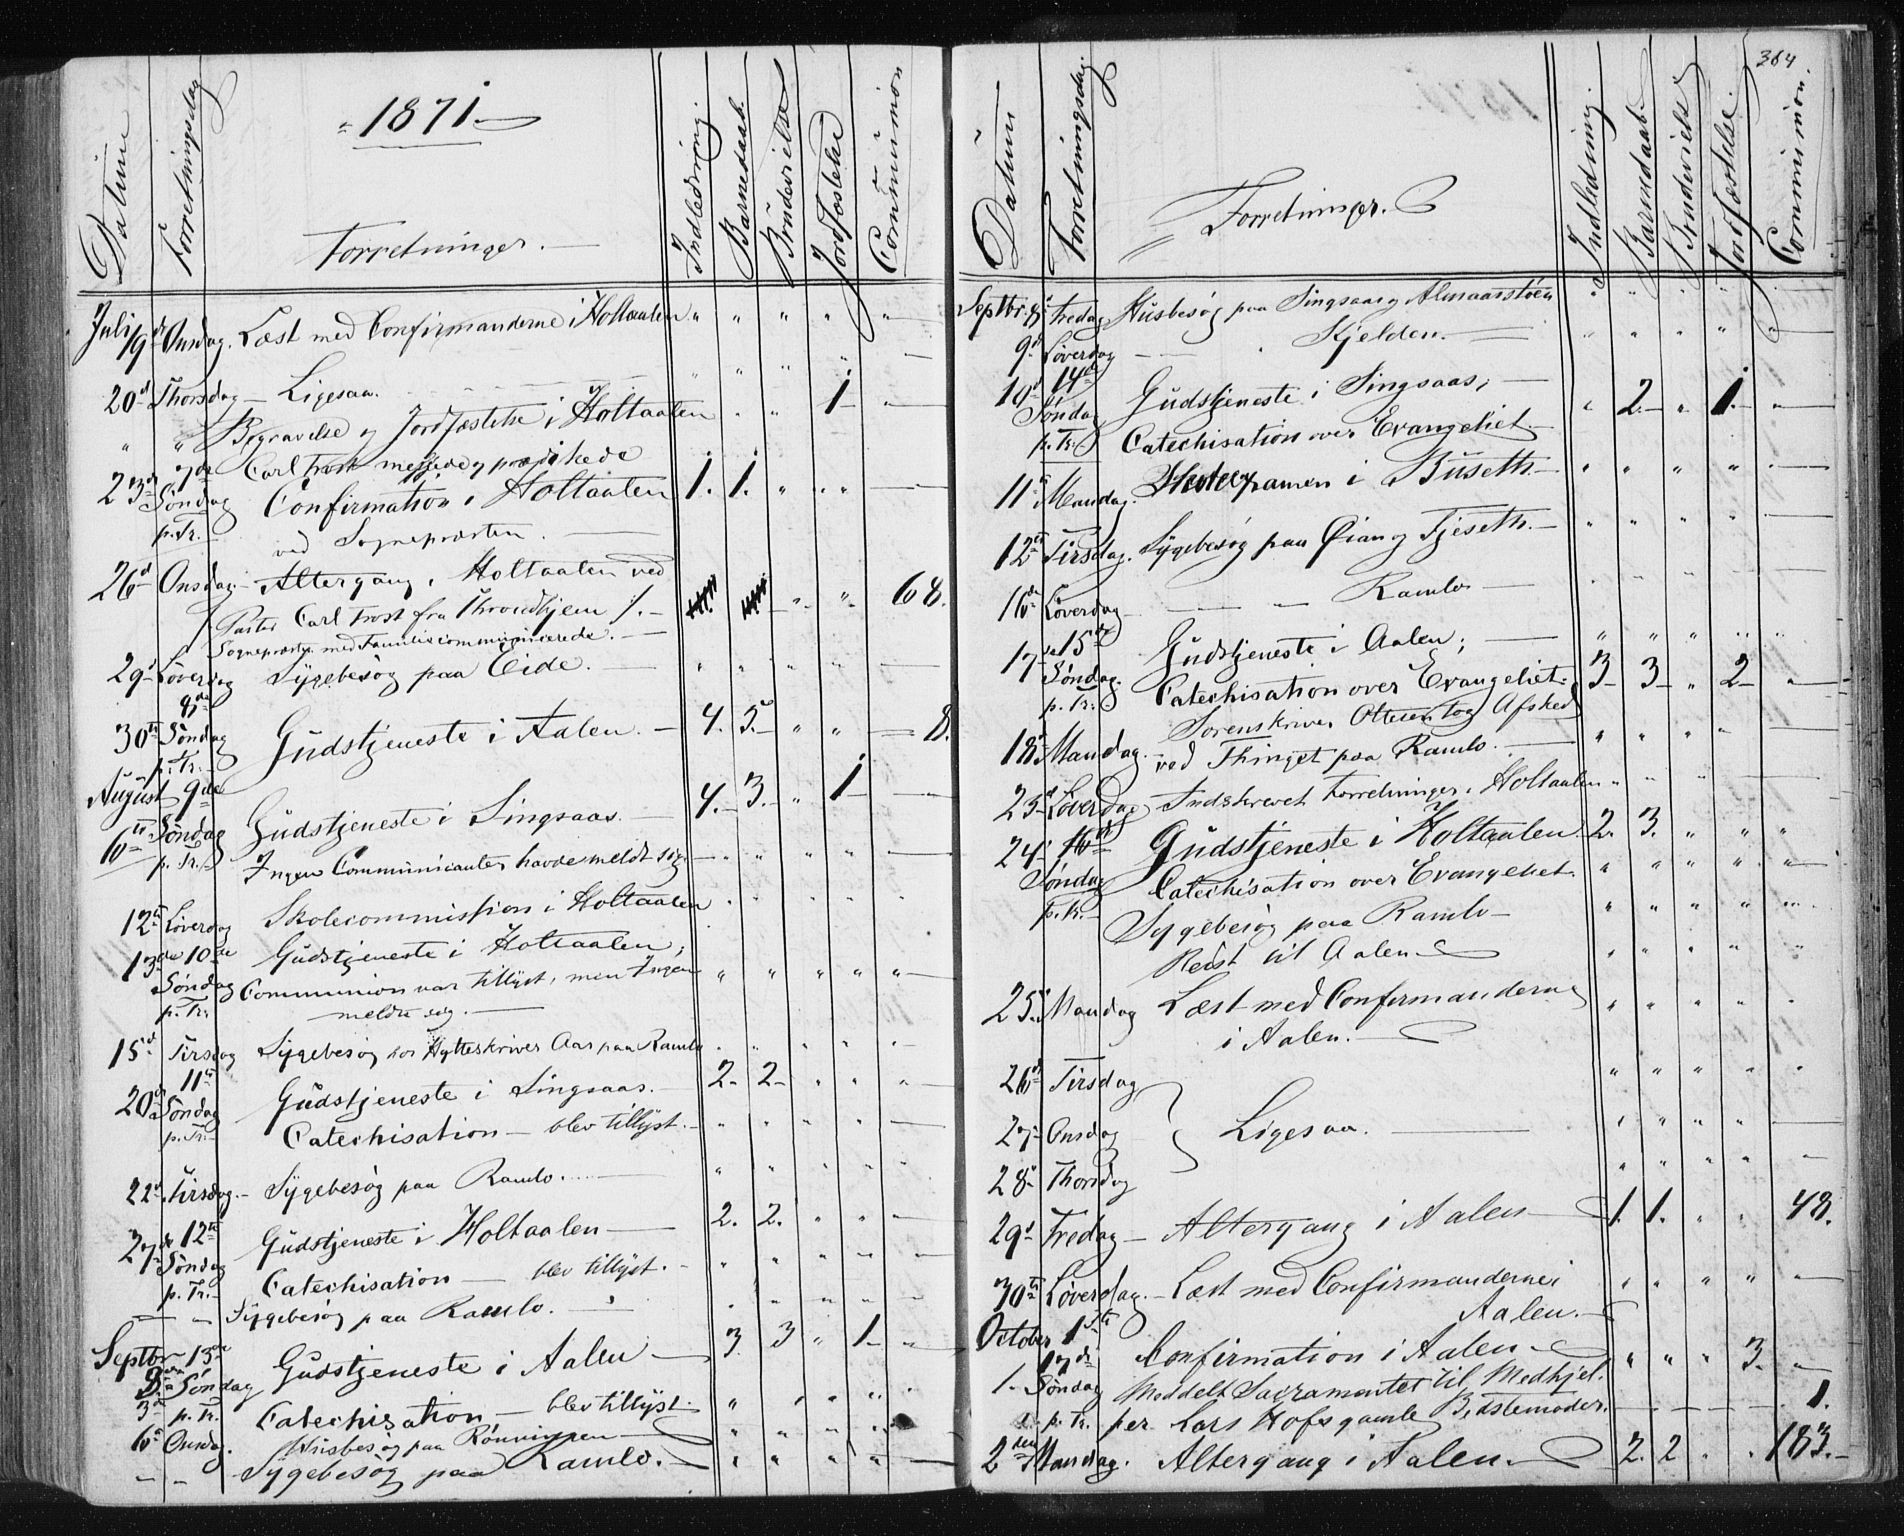 1871.
Datum Forretningsdag Forretninger. Indledning. Barnedaab. Brudevielse Jordfæstelse Communion
Juli 19d Onsdag. Læst med Confirmanderne i Holtaalen " " " " "
20d Thorsdag — Ligesaa. " " " "
" " Begravelse og Jordfæstelse i Holtaalen " " 1
23d 7de Carl Trost messede og prædikede
Søndag Confirmation i Holtaalen 1. 1. " " "
p. Tr. ved Sognepræsten.
26d Onsdag Altergang i Holtaalen ved
Pastor Carl Trost fra Throndhjem /. " " 68.
Sognepræsten med Familie communicerede.
29d Løverdag Sygebesøg paa Eide. " " " "
8de
30te Søndag Gudstjeneste i Aalen. 4. 5. " " 8.
p. Tr.
August 9de
6te Søndag Gudstjeneste i Singsaas. 4. 3. " 1
p. Tr. Ingen Communicanter havde meldt sig. " " " "
12te Løverdag Skolecommission i Holtaalen " " " " "
13de 10de Gudstjeneste i Holtaalen;
Søndag Communion var tillyst, men Ingen " " " " "
p. Tr. meldte sig.
15d Tirsdag Sygebesøg hos Hytteskriver Aas paa Ramlo " " " " "
11te
20d Søndag Gudstjeneste i Singsaas. 2. 2. " " "
p. Tr. Catechisation — blev tillyst. " " " "
22d Tirsdag. Sygebesøg paa Ramlo. " " " " "
27d 12te Gudstjeneste i Holtaalen 2. 2. " " "
Søndag
p. Tr. Catechisation — blev tillyst. " " " " "
— — Sygebesøg paa Ramlo. " " " " "
Septbr 13de Gudstjeneste i Aalen 3. 3 " 1
Søndag
3d p. Tr. Catechisation — blev tillyst. " " " "
6te Onsdag. Husbesøg paa Rønningen " " " "
— — Sygebesøg paa Ramlo. " " " "
364
Datum Forretningsdag. Forretninger. Indledning. Barnedaab. Brudevielse Jordfæstelse. Communion.
Septbr. 8d Fredag Husbesøg paa Singsaas og Almaasstøen " " " " "
9d Løverdag — — Kjelden. " " " "
10d 14de Gudstjeneste i Singsaas; " 2. " 1. "
Søndag
p. Tr. Catechisation over Evangeliet.
11te Mandag. Skoleexamen i Buseth. " " " " "
12te Tirsdag. Sygebesøg paa Øian og Tjeseth. " " " "
16de Løverdag — — Ramlo " " " "
17d 15de Gudstjeneste i Aalen; " " " " "
Søndag. Catechisation over Evangeliet. 3 3 " 2 "
p. Tr. Sorenskriver Ottesen tog Afsked
18d Mandag. ved Thinget paa Ramlo. " " " "
23d Løverdag Indskrevet Forretninger i Holtaalen " " " "
24d 16de Gudstjeneste i Holtaalen 2. 3. " " "
Søndag Catechisation over Evangeliet. " " " " "
p. Tr. Sygebesøg paa Ramlo " " " " "
Reist til Aalen. " " " " "
25d Mandag Læst med Confirmanderne " " " " "
i Aalen.
26d Tirsdag " " " " "
27d Onsdag } Ligesaa. " " " "
28d Thorsdag " " " "
29d Fredag — Altergang i Aalen 1. 1. " " 48.
30te Løverdag. — Læst med Confirmanderne i " " " "
Aalen.
October 1ste
17de Confirmation i Aalen " " " 3.
1. Søndag Meddelt Sacramentet til Medhjel- 1.
p. Tr. per Lars Hofs gamle Bedstemoder.
2den Mandag. Altergang i Aalen. 2. 2 " " 183.